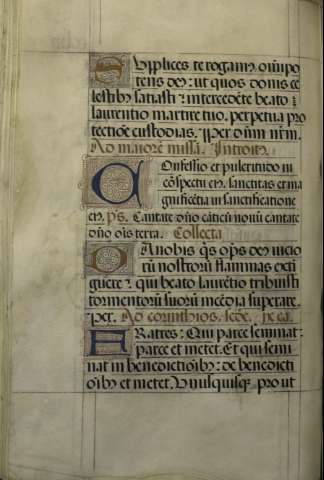 Supplices te rogam9 om̄ipo
tens deus: ut quos donis ce
lestib3 satiasti: intercedēte beato
laurentio martire tuo, perpetua pro
tectiōe custodias. Per dn̄m nr̄m.
Ad maiorē missā. Introit9
Confessio et pulcritudo in
cōspectu ei9, sanctitas et ma
gnificētia in sanctificatione
ei9. ps̄. Cantate dn̄o cāticū novū cantate
dn̄o ōis terra. Collecta
Da nobis q̄s op̄s de9 vicio
rū nostrorū flammas exti
guere: qui beato laurētio tribuisti
tormentorū suorū incēdia superare.
Per. Ad corinthios. scd̄e.
FRatres: Qui parce seminat:
parce et metet. Et qui semi
nat in benedictiōib3: de benedicti
ōib3 et metet. Unusquisq3 prout